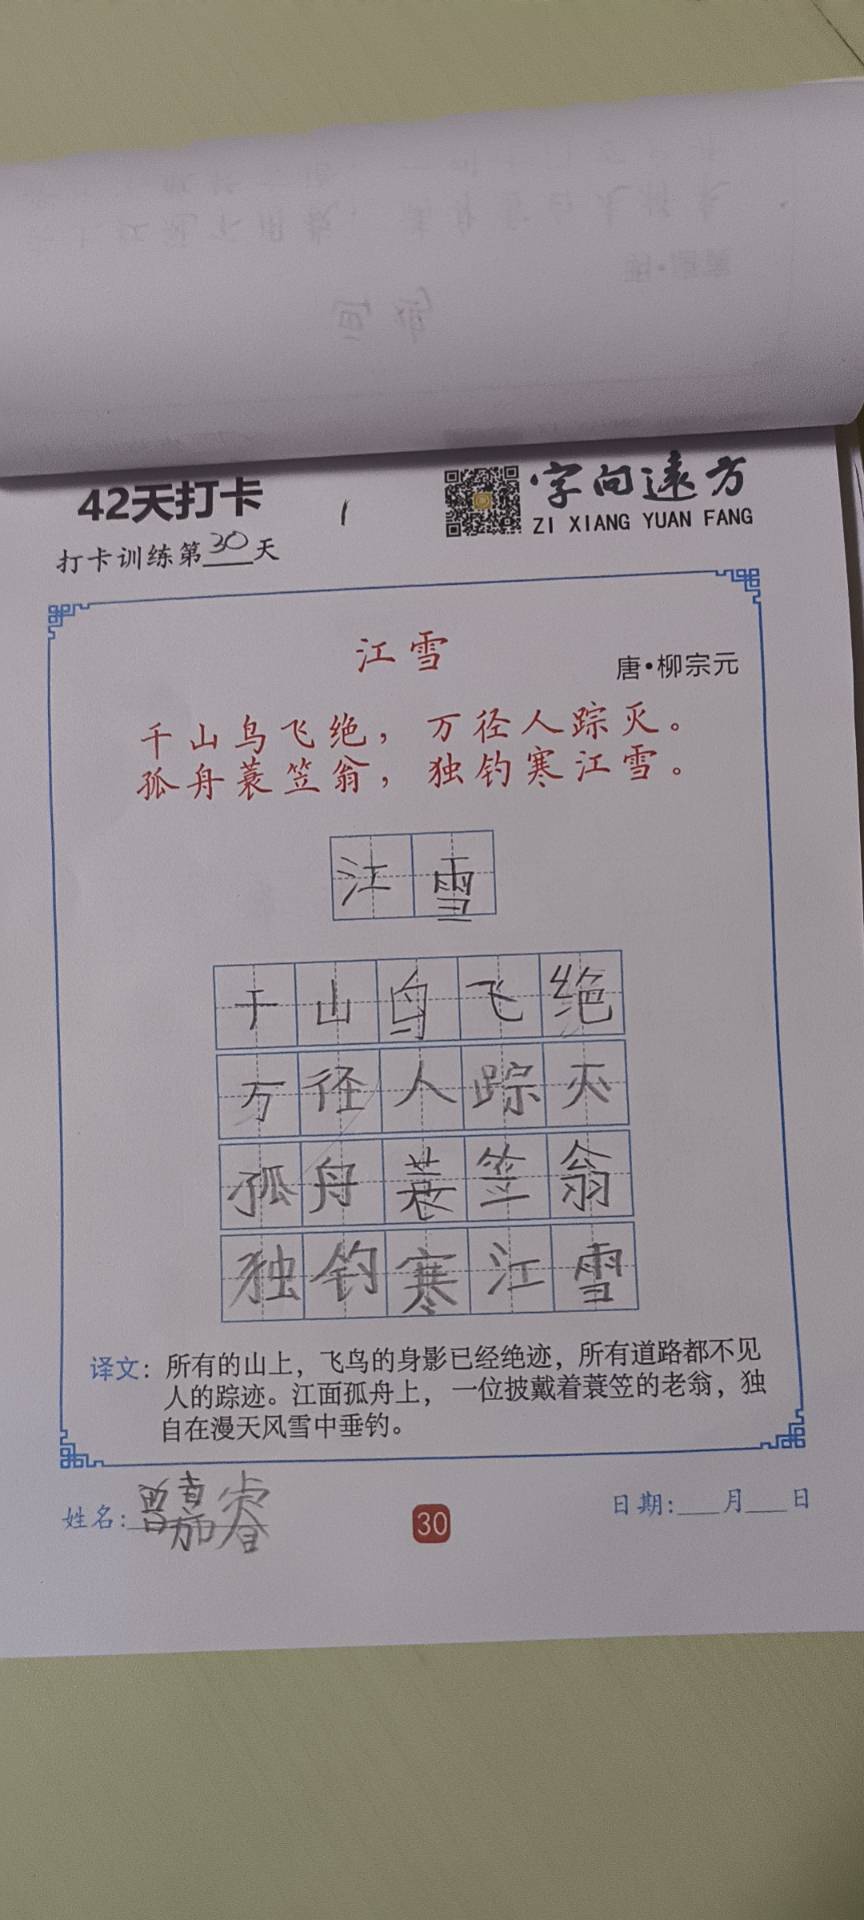 42天打卡
字向远方
ZI XIANG YUAN FANG
打卡训练第30天
江雪
唐·柳宗元
千山鸟飞绝，万径人踪灭。
孤舟蓑笠翁，独钓寒江雪。
江雪
千山鸟飞绝
万径人踪灭
孤舟蓑笠翁
独钓寒江雪
译文：所有的山上，飞鸟的身影已经绝迹，所有道路都不见
人的踪迹。江面孤舟上，一位披戴着蓑笠的老翁，独
自在漫天风雪中垂钓。
姓名：
30
日期：___月___日